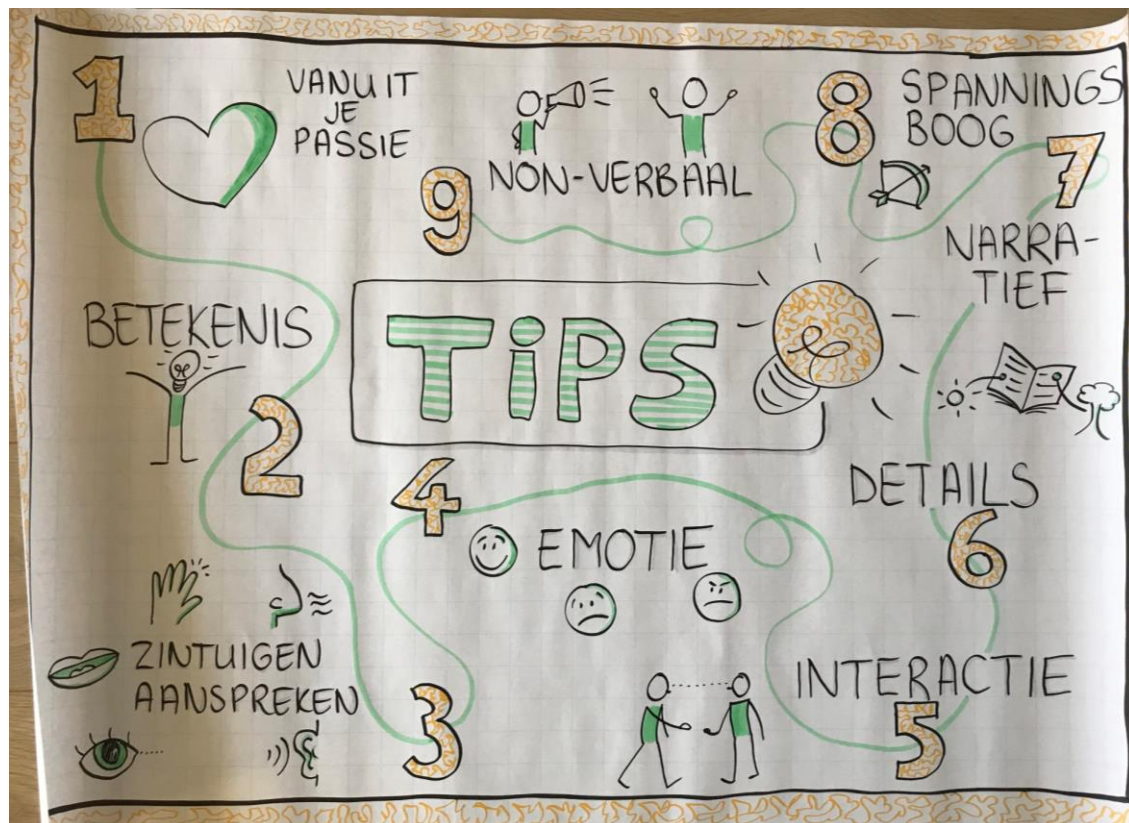 1
VANUIT
JE
PASSIE
BETEKENIS
2
ZINTUIGEN
AANSPREKEN
3
4
EMOTIE
INTERACTIE
5
DETAILS
6
7
NARRA-
TIEF
8
SPANNINGS
BOOG
9
NON-VERBAAL
TiPS